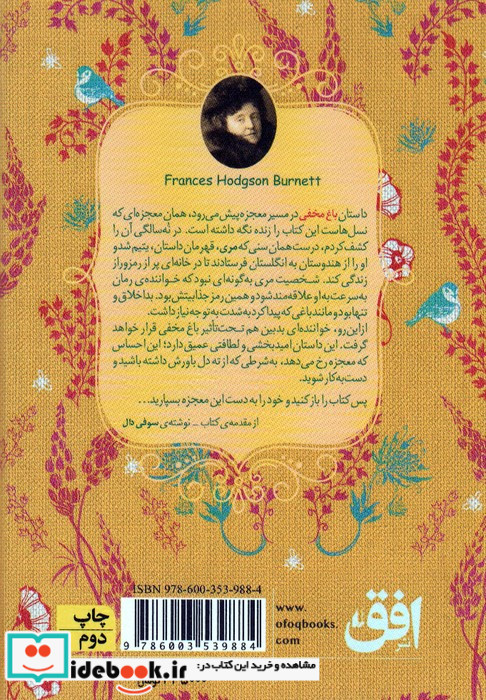 Frances Hodgson Burnett
داستان باغ مخفی در مسیر معجزه پیش می‌رود، همان معجزه‌ای که
نسل‌هاست این کتاب را زنده نگه داشته است. در نُه‌سالگی آن را
کشف کردم، درست همان سنی که مری، قهرمان داستان، یتیم شد و
او را از هندوستان به انگلستان فرستادند تا در خانه‌ای پر از رمزوراز
زندگی کند. شخصیت مری به‌گونه‌ای نبود که خواننده‌ی رمان
به‌سرعت به او علاقه‌مند شود و همین رمز جذابیتش بود. بداخلاق و
تنها بود و مانند باغی که پیدا کرد به‌شدت به توجه نیاز داشت.
از این‌رو، خواننده‌ای بدبین هم تحت‌تأثیر باغ مخفی قرار خواهد
گرفت. این داستان امیدبخشی و لطافتی عمیق دارد؛ این احساس
که معجزه رخ می‌دهد، به‌شرطی که از ته دل باورش داشته باشید و
دست‌به‌کار شوید.
پس کتاب را باز کنید و خود را به دست این معجزه بسپارید...
از مقدمه‌ی کتاب - نوشته‌ی سوفی دال
ISBN 978-600-353-988-4
9 786003 539884
www.
ofoqbooks.
com
افق
چاپ
دوم
idebook.ir
مشاهده و خرید این کتاب در: